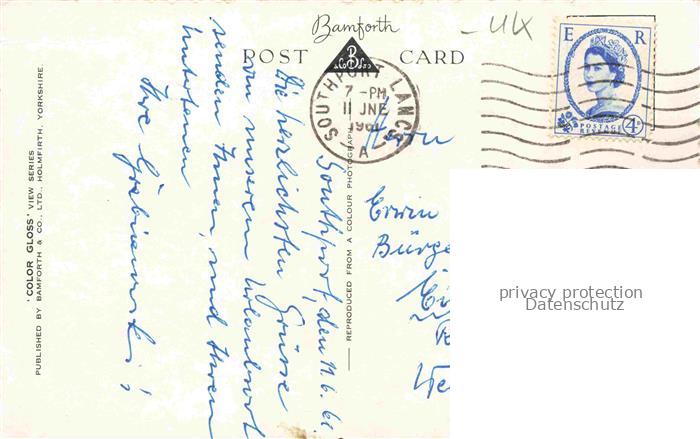 Bamforth
POST CARD
UK
E R
POSTAGE
REVENUE
4D
SOUTHPORT LANCS
7 - PM
11 JNE
1961
A
Southport, den 11.6.61.
Die herzlichsten Grüsse
von unserem Urlaubsort
senden Ihnen, und Ihren
Ihre
Herrn
Erwin
Bürge
privacy protection
Datenschutz
REPRODUCED FROM A COLOUR PHOTOGRAPH
'COLOR GLOSS' VIEW SERIES
PUBLISHED BY BAMFORTH & CO., LTD., HOLMFIRTH, YORKSHIRE.